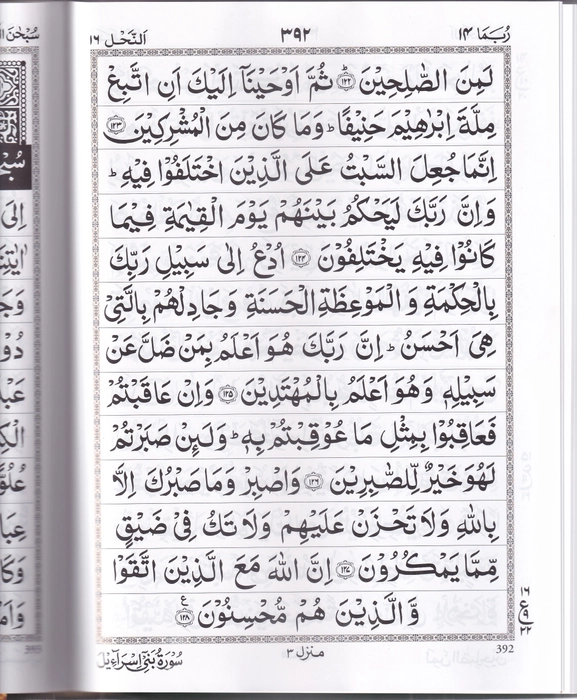 رُبَمَا ١٤
٣٩٢
اَلنَّحْل ١٦
لَمِنَ الصّٰلِحِيْنَ ﴿١٢٢﴾ ثُمَّ اَوْحَيْنَآ اِلَيْكَ اَنِ اتَّبِعْ
مِلَّةَ اِبْرٰهِيْمَ حَنِيْفًا ؕ وَمَا كَانَ مِنَ الْمُشْرِكِيْنَ ﴿١٢٣﴾
اِنَّمَا جُعِلَ السَّبْتُ عَلَى الَّذِيْنَ اخْتَلَفُوْا فِيْهِ ؕ
وَاِنَّ رَبَّكَ لَيَحْكُمُ بَيْنَهُمْ يَوْمَ الْقِيٰمَةِ فِيْمَا
كَانُوْا فِيْهِ يَخْتَلِفُوْنَ ﴿١٢٤﴾ اُدْعُ اِلٰى سَبِيْلِ رَبِّكَ
بِالْحِكْمَةِ وَ الْمَوْعِظَةِ الْحَسَنَةِ وَجَادِلْهُمْ بِالَّتِيْ
هِىَ اَحْسَنُ ؕ اِنَّ رَبَّكَ هُوَ اَعْلَمُ بِمَنْ ضَلَّ عَنْ
سَبِيْلِهٖ وَهُوَ اَعْلَمُ بِالْمُهْتَدِيْنَ ﴿١٢٥﴾ وَاِنْ عَاقَبْتُمْ
فَعَاقِبُوْا بِمِثْلِ مَا عُوْقِبْتُمْ بِهٖ ؕ وَلَىِٕنْ صَبَرْتُمْ
لَهُوَ خَيْرٌ لِّلصّٰبِرِيْنَ ﴿١٢٦﴾ وَاصْبِرْ وَمَا صَبْرُكَ اِلَّا
بِاللّٰهِ وَلَا تَحْزَنْ عَلَيْهِمْ وَلَا تَكُ فِيْ ضَيْقٍ
مِّمَّا يَمْكُرُوْنَ ﴿١٢٧﴾ اِنَّ اللّٰهَ مَعَ الَّذِيْنَ اتَّقَوْا
وَّالَّذِيْنَ هُمْ مُّحْسِنُوْنَ ﴿١٢٨﴾ ع
١٦
ع ٩
٢٢
392
منزل ٣
سُوْرَةُ بَنِيْٓ اِسْرَآءِيْلَ